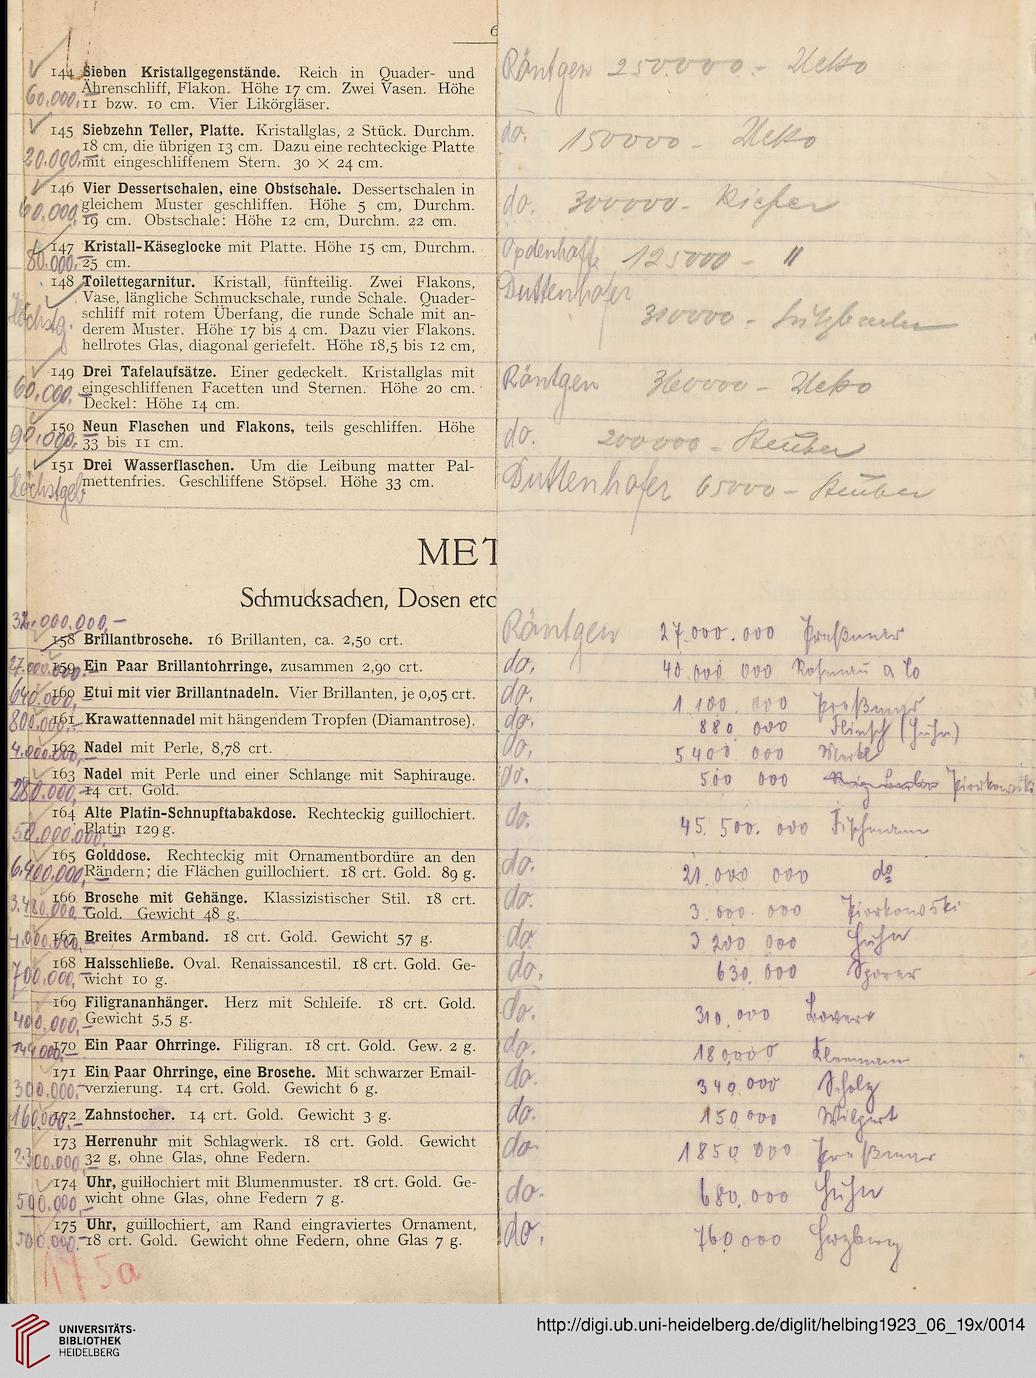 6
144 Sieben Kristallgegenstände. Reich in Quader- und
Ährenschliff, Flakon. Höhe 17 cm. Zwei Vasen. Höhe
11 bzw. 10 cm. Vier Likörgläser.
60.000,—
Röntgen 250000.-
145 Siebzehn Teller, Platte. Kristallglas, 2 Stück. Durchm.
18 cm, die übrigen 13 cm. Dazu eine rechteckige Platte
mit eingeschliffenem Stern. 30 × 24 cm.
20.000,—
do. 150000 -
146 Vier Dessertschalen, eine Obstschale. Dessertschalen in
gleichem Muster geschliffen. Höhe 5 cm, Durchm.
19 cm. Obstschale: Höhe 12 cm, Durchm. 22 cm.
60.000,—
do. 300000 - Kiefer
147 Kristall-Käseglocke mit Platte. Höhe 15 cm, Durchm.
25 cm.
80.000,—
125000 - "
148 Toilettegarnitur. Kristall, fünfteilig. Zwei Flakons,
Vase, längliche Schmuckschale, runde Schale. Quader-
schliff mit rotem Überfang, die runde Schale mit an-
derem Muster. Höhe 17 bis 4 cm. Dazu vier Flakons.
hellrotes Glas, diagonal geriefelt. Höhe 18,5 bis 12 cm,
Höchstg.
Duttenhofer
310000 -
149 Drei Tafelaufsätze. Einer gedeckelt. Kristallglas mit
eingeschliffenen Facetten und Sternen. Höhe 20 cm.
Deckel: Höhe 14 cm.
60.000,—
Röntgen 360000 -
150 Neun Flaschen und Flakons, teils geschliffen. Höhe
33 bis 11 cm.
90.000,—
do. 200000 - Steuber
151 Drei Wasserflaschen. Um die Leibung matter Pal-
mettenfries. Geschliffene Stöpsel. Höhe 33 cm.
Höchstgeb
Duttenhofer 65000 - Steuber
MET
Schmucksachen, Dosen etc
158 Brillantbrosche. 16 Brillanten, ca. 2,50 crt.
Röntgen 27.000.000
159 Ein Paar Brillantohrringe, zusammen 2,90 crt.
27.000.000.-
do. 40.000 000
160 Etui mit vier Brillantnadeln. Vier Brillanten, je 0,05 crt.
640.000,
do. 1 100.000
161 Krawattennadel mit hängendem Tropfen (Diamantrose).
800.000,-
do. 880 000
162 Nadel mit Perle, 8,78 crt.
do. 5400 000
163 Nadel mit Perle und einer Schlange mit Saphirauge.
14 crt. Gold.
280.000,—
do. 500 000 Piorkowski
164 Alte Platin-Schnupftabakdose. Rechteckig guillochiert.
Platin 129 g.
do. 45.500.000 Fischmann
165 Golddose. Rechteckig mit Ornamentbordüre an den
Rändern; die Flächen guillochiert. 18 crt. Gold. 89 g.
6.400.000,
do. 21.000 000 do
166 Brosche mit Gehänge. Klassizistischer Stil. 18 crt.
Gold. Gewicht 48 g.
do. 3.000.000 Piorkowski
167 Breites Armband. 18 crt. Gold. Gewicht 57 g.
do. 3 200 000 Huhn
168 Halsschließe. Oval. Renaissancestil. 18 crt. Gold. Ge-
wicht 10 g.
700.000,
do. 630,000 Sporer
169 Filigrananhänger. Herz mit Schleife. 18 crt. Gold.
Gewicht 5,5 g.
400.000,—
do. 310,000
170 Ein Paar Ohrringe. Filigran. 18 crt. Gold. Gew. 2 g.
do. 180000
171 Ein Paar Ohrringe, eine Brosche. Mit schwarzer Email-
verzierung. 14 crt. Gold. Gewicht 6 g.
300.000,-
do. 340,000 Scholz
172 Zahnstocher. 14 crt. Gold. Gewicht 3 g.
160.000,-
do. 150,000
173 Herrenuhr mit Schlagwerk. 18 crt. Gold. Gewicht
32 g, ohne Glas, ohne Federn.
2.300.000
do. 1850 000
174 Uhr, guillochiert mit Blumenmuster. 18 crt. Gold. Ge-
wicht ohne Glas, ohne Federn 7 g.
500.000,—
do. 680,000 Huhn
175 Uhr, guillochiert, am Rand eingraviertes Ornament,
18 crt. Gold. Gewicht ohne Federn, ohne Glas 7 g.
500.000.—
do. 760000 Herzberg
175a
UNIVERSITÄTS-
BIBLIOTHEK
HEIDELBERG
http://digi.ub.uni-heidelberg.de/diglit/helbing1923_06_19x/0014